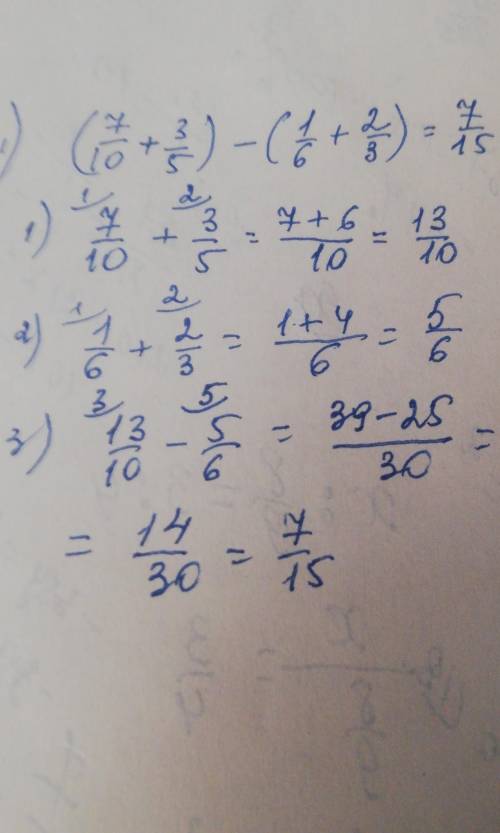 1) (7/10 + 3/5) - (1/6 + 2/3) = 7/15
1) 7/10 (1 + 3/5 (2 = (7+6)/10 = 13/10
2) 1/6 (1 + 2/3 (2 = (1+4)/6 = 5/6
3) 13/10 (3 - 5/6 (5 = (39-25)/30 =
= 14/30 = 7/15